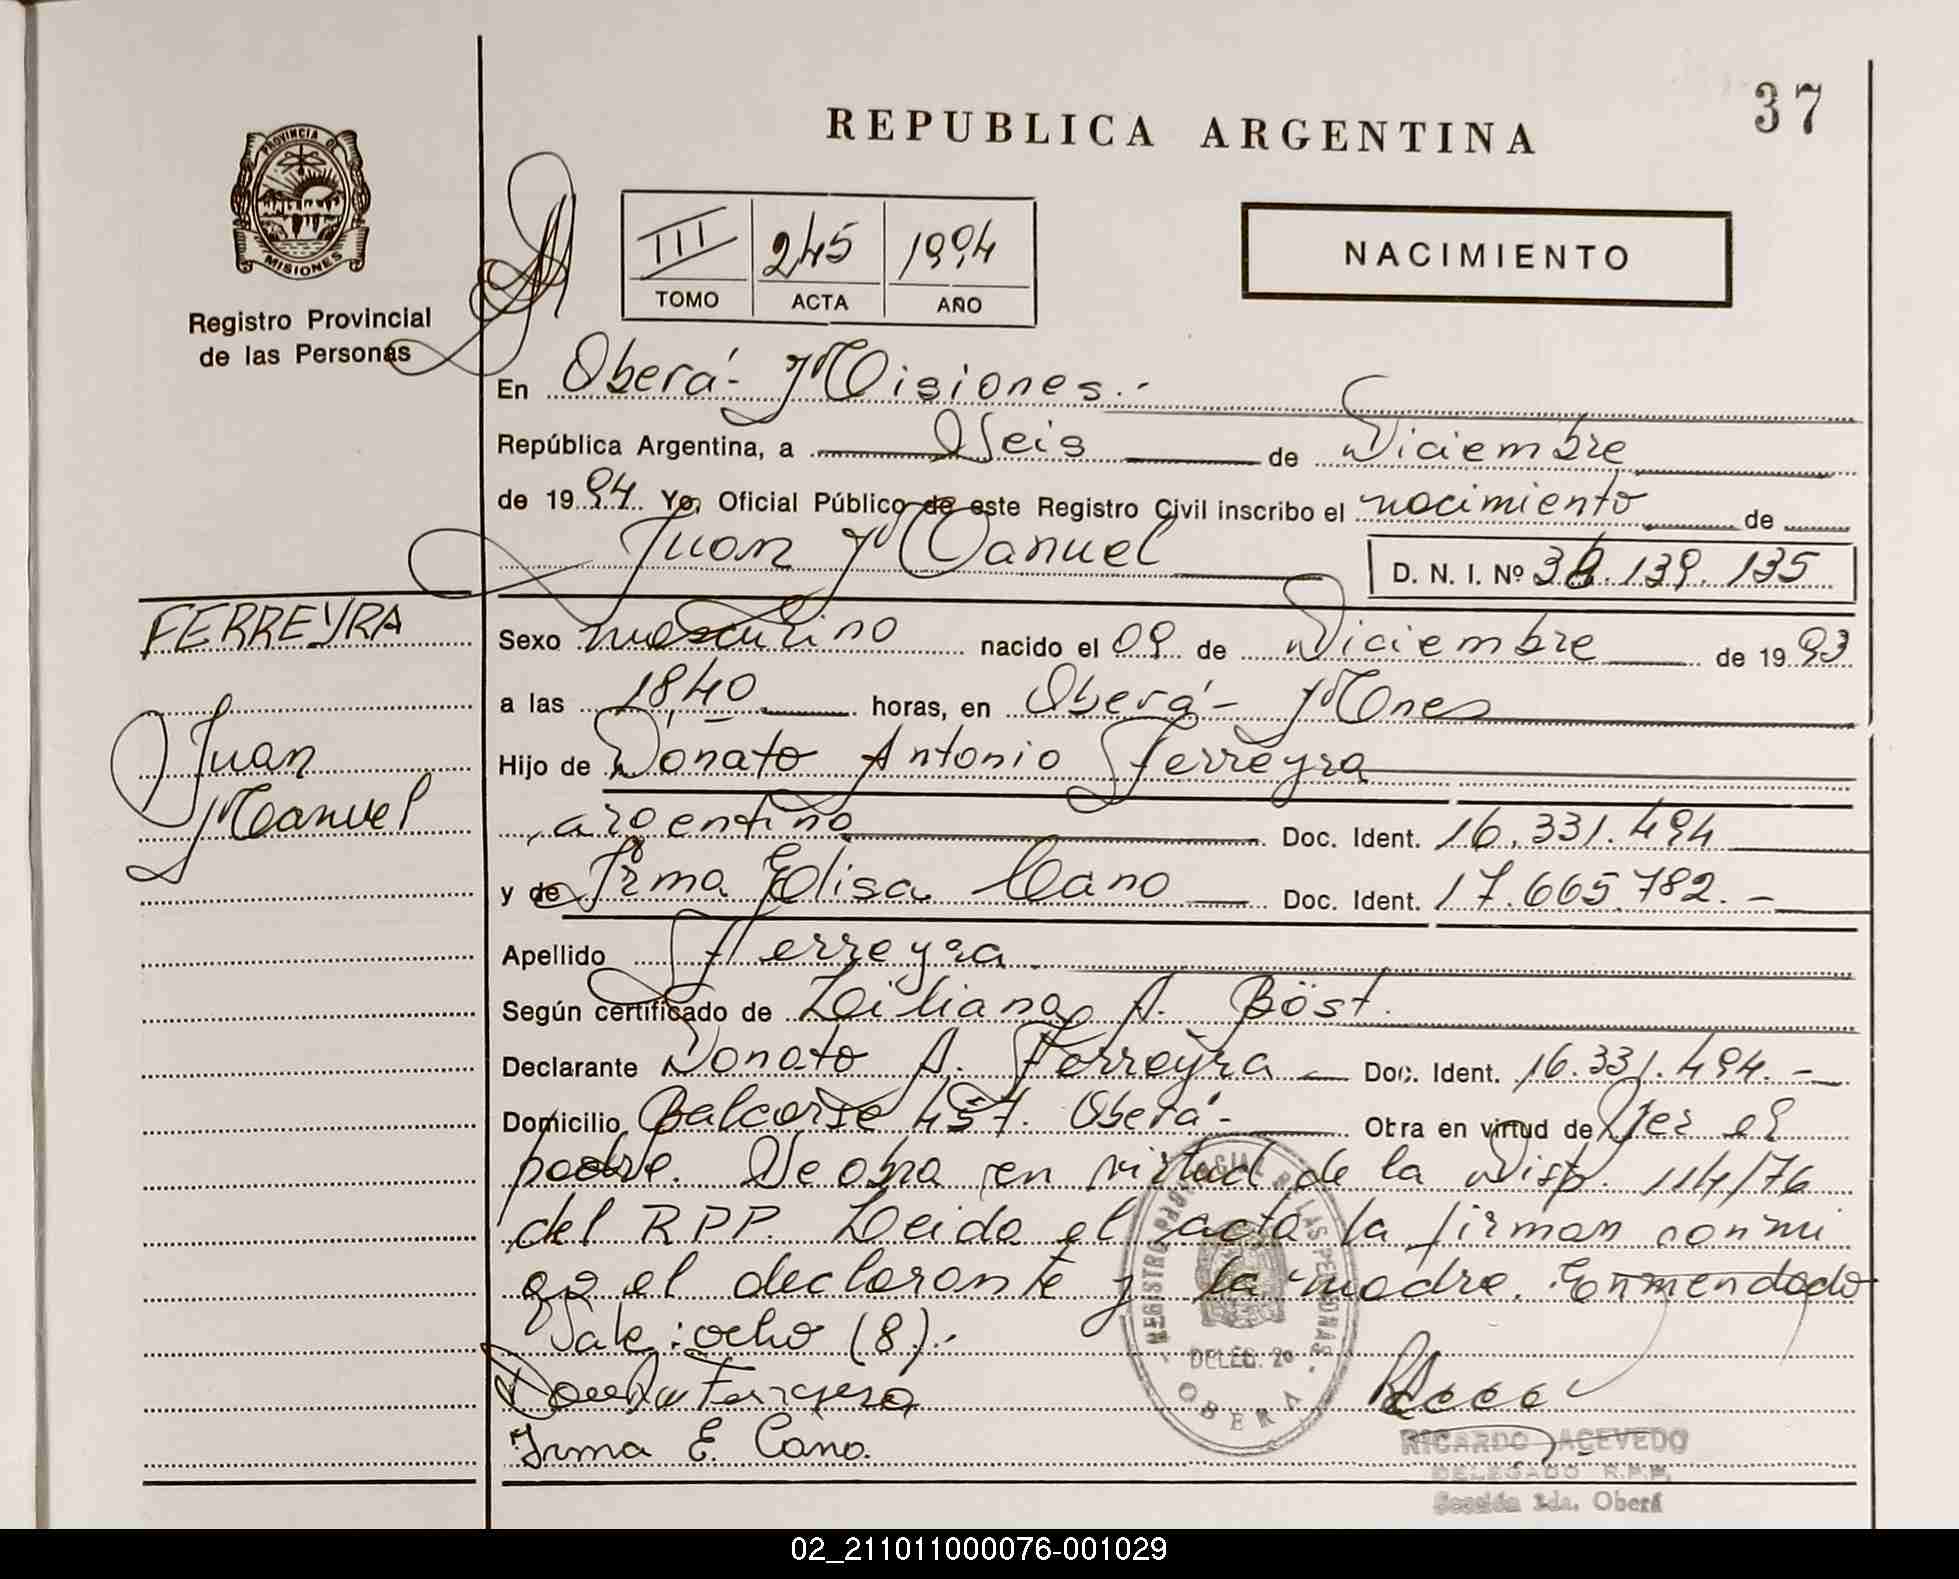 37
REPUBLICA ARGENTINA
PROVINCIA DE
MISIONES
Registro Provincial
de las Personas
III 245 1994
TOMO ACTA AÑO
NACIMIENTO
En Oberá- Misiones.-
República Argentina, a Seis de Diciembre
de 1994 Yo, Oficial Público de este Registro Civil inscribo el nacimiento de
Juan Manuel D. N. I. Nº 38.139.135
FERREYRA
Juan
Manuel
Sexo masculino nacido el 09 de Diciembre de 1993
a las 18,40 horas, en Oberá- Mnes
Hijo de Donato Antonio Ferreyra
argentino Doc. Ident. 16.331.494
y de Irma Elisa Cano Doc. Ident. 17.665.782.-
Apellido Ferreyra
Según certificado de Liliana A. Böst.
Declarante Donato A. Ferreyra Doc. Ident. 16.331.494.-
Domicilio Balcarse 457. Oberá- Obra en virtud de Ser el
padre. Se obra en virtud de la Disp. 114/76
del RPP. Leida el acta la firman conmi
go el declarante y la madre. Enmendado
Vale: ocho (8).-
Ferreyra
Irma E. Cano.
REGISTRO PROVINCIAL DE LAS PERSONAS
DELEG. 2a
OBERA
RICARDO ACEVEDO
DELEGADO R.P.P.
Sección 2da. Oberá
02_211011000076-001029